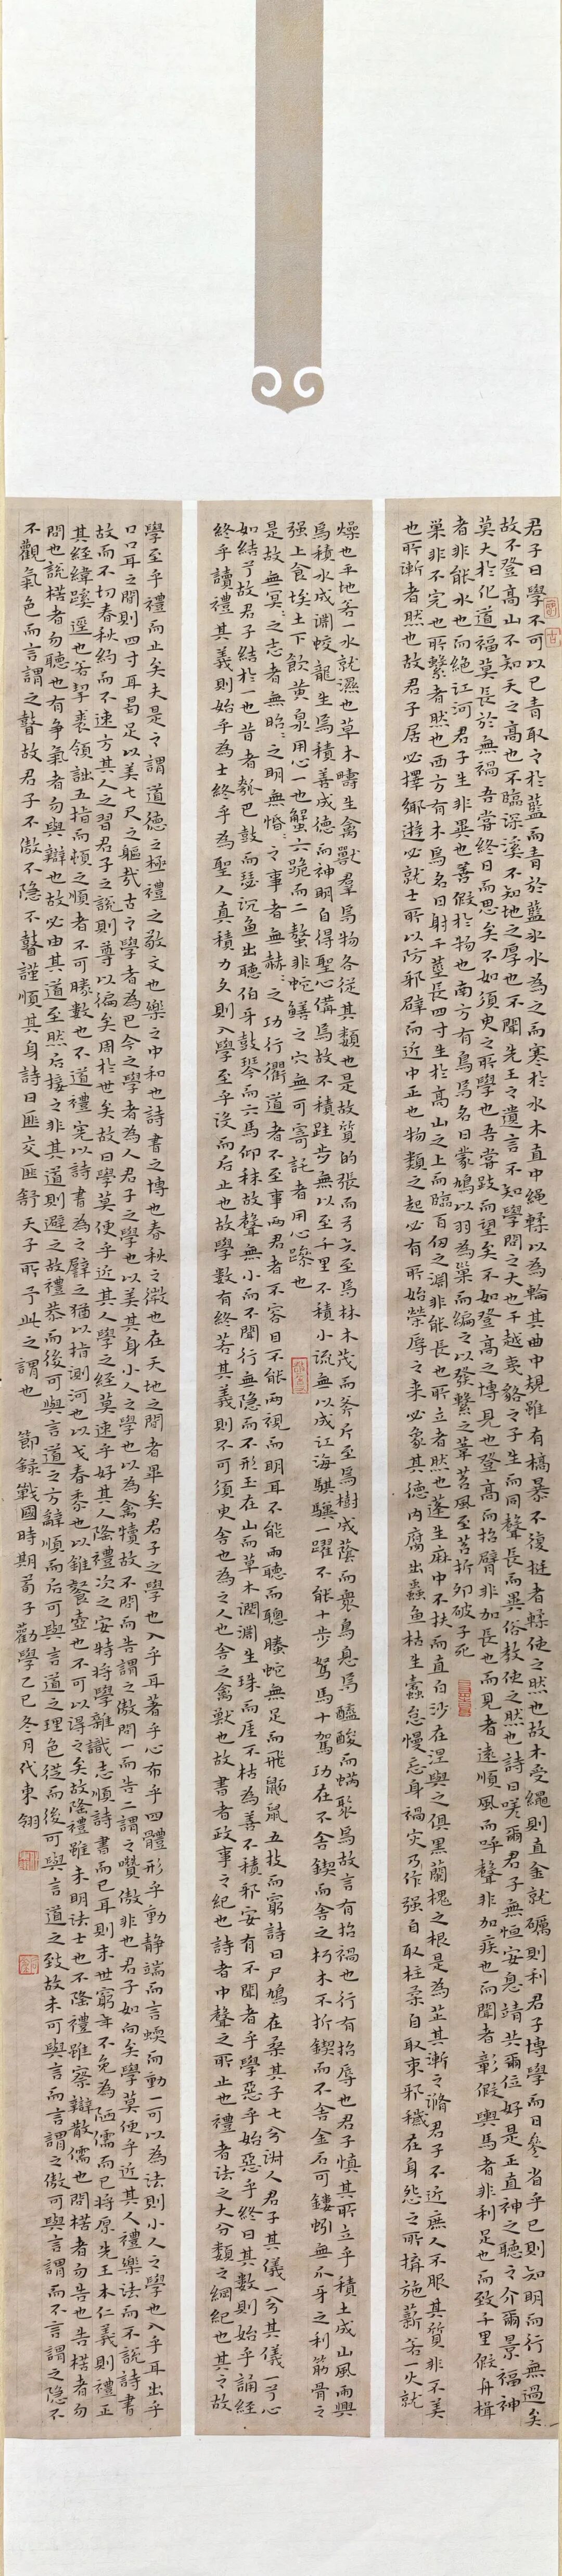 君子曰學不可以已青取之於藍而青於藍氷水為之而寒於水木直中繩輮以為輪其曲中規雖有槁暴不復挺者輮使之然也故木受繩則直金就礪則利君子博學而日參省乎已則知明而行無過矣
故不登高山不知天之高也不臨深溪不知地之厚也不聞先王之遺言不知學問之大也干越夷貉之子生而同聲長而異俗教使之然也詩曰嗟爾君子無恒安息靖共爾位好是正直神之聽之介爾景福神
莫大於化道福莫長於無禍吾嘗終日而思矣不如須臾之所學也吾嘗跂而望矣不如登高之博見也登高而招臂非加長也而見者遠順風而呼聲非加疾也而聞者彰假輿馬者非利足也而致千里假舟楫
者非能水也而絕江河君子生非異也善假於物也南方有鳥焉名曰蒙鳩以羽為巢而編之以發繫之葦苕風至苕折卵破子死
巢非不完也所繫者然也西方有木焉名曰射干莖長四寸生於高山之上而臨百仞之淵非能長也所立者然也蓬生麻中不扶而直白沙在涅與之俱黑蘭槐之根是為芷其漸之滫君子不近庶人不服其質非不美
也所漸者然也故君子居必擇鄉遊必就士所以防邪辟而近中正也物類之起必有所始榮辱之来必象其德肉腐出蟲魚枯生蠹怠慢忘身禍灾乃作强自取柱柔自取束邪穢在身怨之所搆施薪若一火就
燥也平地若一水就濕也草木疇生禽獸羣焉物各從其類也是故質的張而弓矢至焉林木茂而斧斤至焉樹成蔭而衆鳥息焉醯酸而蜹聚焉故言有招禍也行有招辱也君子慎其所立乎積土成山風雨興
焉積水成淵蛟龍生焉積善成德而神明自得聖心備焉故不積跬步無以至千里不積小流無以成江海騏驥一躍不能十步駑馬十駕功在不舍鍥而舍之朽木不折鍥而不舍金石可鏤蚓無爪牙之利筋骨之
强上食埃土下飲黃泉用心一也蟹六跪而二螯非蛇鱔之穴無可寄託者用心躁也
是故無冥:之志者無昭:之明無惛:之事者無赫:之功行衢道者不至事兩君者不容目不能兩視而明耳不能兩聽而聰螣蛇無足而飛鼫鼠五技而窮詩曰尸鳩在桑其子七兮淑人君子其儀一兮其儀一兮心
如結兮故君子結於一也昔者瓠巴鼓而瑟沉魚出聽伯牙鼓琴而六馬仰秣故聲無小而不聞行無隐而不形玉在山而草木潤淵生珠而厓不枯為善不積邪安有不聞者乎學惡乎始惡乎終曰其數則始乎誦經
終乎讀禮其義則始乎為士終乎為聖人真積力久則入學至乎沒而后止也故學數有終若其義則不可須臾舍也為之人也舍之禽獸也故書者政事之紀也詩者中聲之所止也禮者法之大分類之綱紀也其之故
學至乎禮而止矣夫是之謂道德之極禮之敬文也樂之中和也詩書之博也春秋之微也在天地之間者畢矣君子之學也入乎耳著乎心布乎四體形乎動静端而言蝡而動一可以為法則小人之學也入乎耳出乎
口口耳之間則四寸耳曷足以美七尺之軀哉古之學者為己今之學者為人君子之學也以美其身小人之學也以為禽犢故不問而告謂之傲問一而告二謂之囋傲非也君子如向矣學莫便乎近其人禮樂法而不說詩書
故而不切春秋約而不速方其人之習君子之說則尊以徧矣周於世矣故曰學莫便乎近其人學之經莫速乎好其人隆禮次之安特將學雜識志順詩書而已耳則末世窮年不免為陋儒而已將原先王本仁義則禮正
其經緯蹊逕也若挈裘領詘五指而頓之順者不可勝數也不道禮憲以詩書為之譬之猶以指測河也以戈舂黍也以錐餐壺也不可以得之矣故隆禮雖未明法士也不隆禮雖察辯散儒也問楛者勿告也告楛者勿
問也說楛者勿聽也有争氣者勿與辯也故必由其道至然后接之非其道則避之故禮恭而後可與言道之方辭順而后可與言道之理色從而後可與言道之致故未可與言而言謂之傲可與言謂而不言謂之隐不
不觀氣色而言謂之瞽故君子不傲不隐不瞽謹順其身詩曰匪交匪舒天子所予此之謂也 節録戰國時期荀子勸學乙巳冬月代東翎